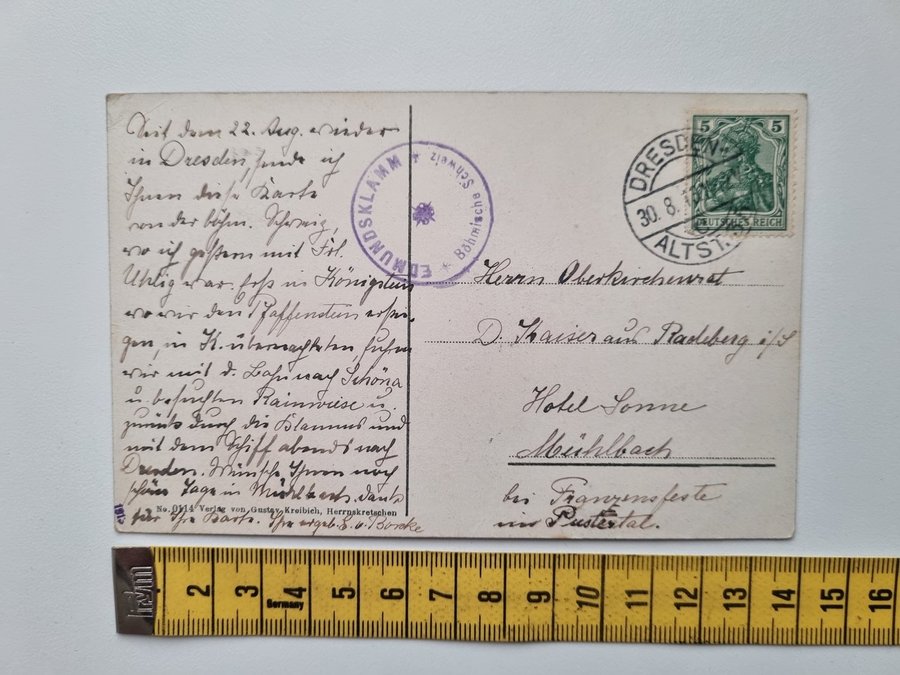 Seit dem 22. Aug. wieder
in Dresden, sende ich
Ihnen diese Karte
von der böhm. Schweiz,
wo ich gestern mit Frl.
Uhlig war. in Königstein
wo wir den Pfaffenstein erstie-
gen, in K. übernachteten, fuhren
wir mit d. Bahn nach Schöna
u. besuchten Rainwiese u.
zurück durch die Klammen und
mit dem Schiff abends nach
Dresden. Wünsche Ihnen noch
schöne Tage in Mühlbach, dank
für Ihre Karte. Ihre ergeb. E. v. Borcke
No. 0114 Verlag von Gustav Kreibich, Herrnskretschen
EDMUNDSKLAMM
* Böhmische Schweiz *
DRESDEN-
30.8.
ALTST.
5 5
DEUTSCHES REICH
Herrn Oberkirchenrat
D. Kaiser aus Radeberg i/S
Hotel Sonne
Mühlbach
bei Franzensfeste
im Pustertal.
hym
2 3 4 5 6 7 8 9 10 11 12 13 14 15 16
Germany